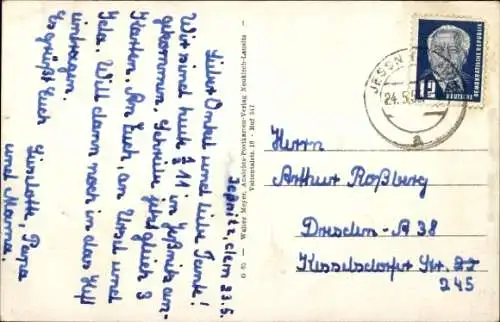 Jeßnitz, den 23.5.
Lieber Onkel und liebe Tante!
Wir sind heute ½ 11 in Jeßnitz an-
gekommen. Schreibe jetzt gleich 3
Karten. An Euch, an Ursel und
Ida. Will dann noch in das Heft
eintragen.
Es grüßt Euch
Liselotte, Papa
und Mama.
G 63 – Walter Meyer, Ansichts-Postkarten-Verlag Neukirch-Lausitz
Valtental 10 · Ruf 317
JESSN
24.5.5
a
12
DEUTSCHE
DEMOKRATISCHE REPUBLIK
Herrn
Arthur Roßberg
Dresden-A 38
Kesselsdorfer Str.
245